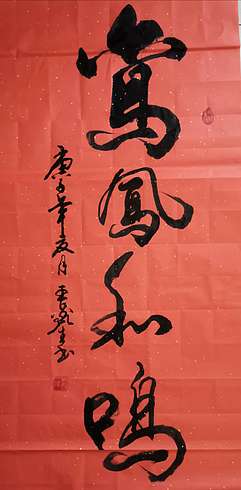 鸞鳳和鳴
庚子年夏月